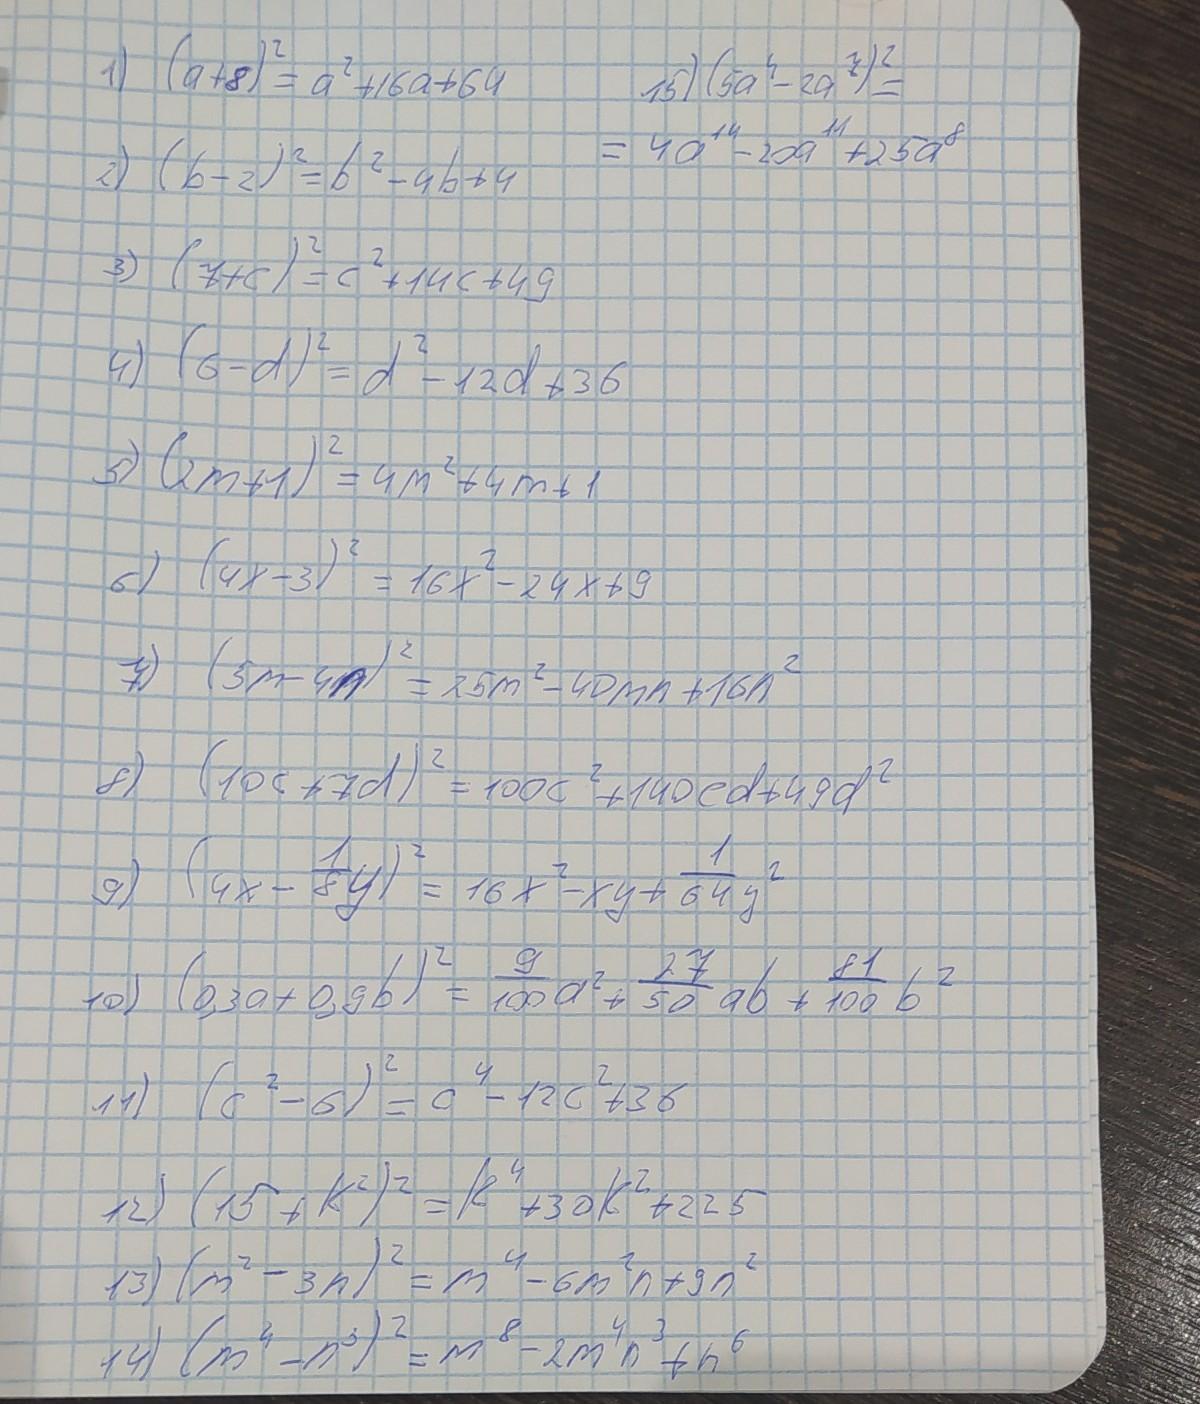 1) (a+8)² = a²+16a+64
2) (b-2)² = b²-4b+4
3) (7+c)² = c²+14c+49
4) (6-d)² = d²-12d+36
5) (2m+1)² = 4m²+4m+1
6) (4x-3)² = 16x²-24x+9
7) (5m-4n)² = 25m²-40mn+16n²
8) (10c+7d)² = 100c²+140cd+49d²
9) (4x-1/8y)² = 16x²-xy+1/64y²
10) (0,3a+0,9b)² = 9/100a²+27/50ab+81/100b²
11) (c²-6)² = c⁴-12c²+36
12) (15+k²)² = k⁴+30k²+225
13) (m²-3n)² = m⁴-6m²n+9n²
14) (m⁴-n³)² = m⁸-2m⁴n³+n⁶
15) (5a⁴-2a⁷)² =
= 4a¹⁴-20a¹¹+25a⁸